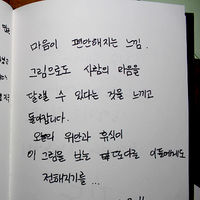 마음이 편안해지는 느낌.
그림으로도 사람의 마음을
달랠 수 있다는 것을 느끼고
돌아갑니다.
오늘의 위안과 휴식이
이 그림을 보는 또다른 이들에게도
전해지기를 ...